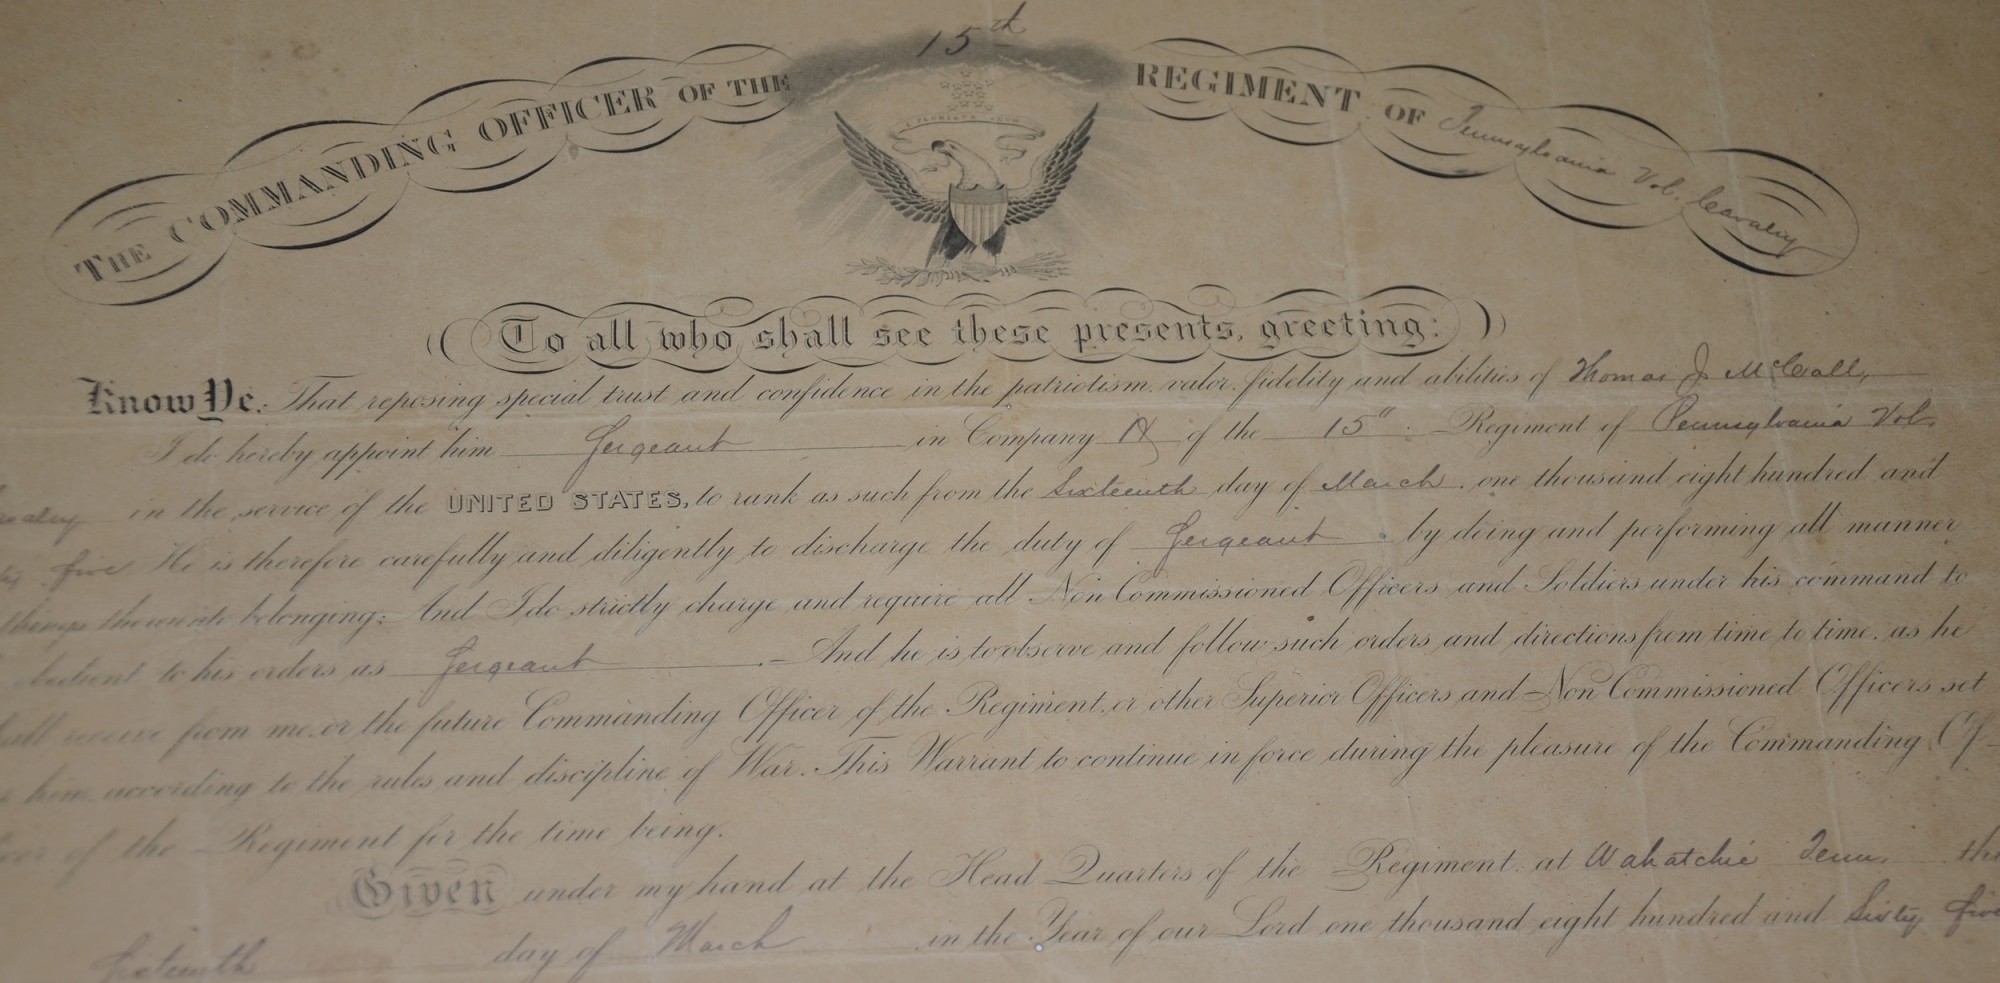 THE COMMANDING OFFICER OF THE 15th REGIMENT OF Pennsylvania Vol. Cavalry
E PLURIBUS UNUM
To all who shall see these presents, greeting:
Know Ye, That reposing special trust and confidence in the patriotism, valor, fidelity and abilities of Thomas J. McCall,
I do hereby appoint him Sergeant in Company of the 15" Regiment of Pennsylvania Vol.
in the service of the UNITED STATES, to rank as such from the Sixteenth day of March one thousand eight hundred and
five He is therefore carefully and diligently to discharge the duty of Sergeant by doing and performing all manner
things thereunto belonging: And I do strictly charge and require all Non Commissioned Officers and Soldiers under his command to
bedient to his orders as Sergeant And he is to observe and follow such orders and directions from time to time, as he
receive from me, or the future Commanding Officer of the Regiment, or other Superior Officers and Non Commissioned Officers set
him, according to the rules and discipline of War. This Warrant to continue in force during the pleasure of the Commanding Of-
of the Regiment for the time being.
Given under my hand at the Head Quarters of the Regiment at Wahatchie Tenn. the
Sixteenth day of March in the Year of our Lord one thousand eight hundred and Sixty five